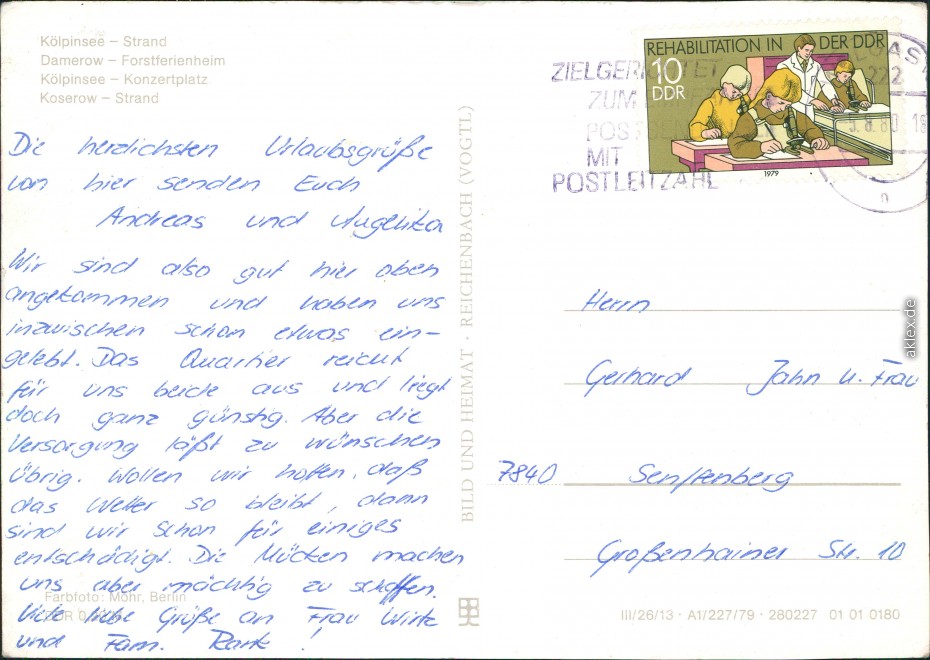 Kölpinsee – Strand
Damerow – Forstferienheim
Kölpinsee – Konzertplatz
Koserow – Strand
Die herzlichsten Urlaubsgrüße
von hier senden Euch
Andreas und Angelika
Wir sind also gut hier oben
angekommen und haben uns
inzwischen schon etwas ein-
gelebt. Das Quartier reicht
für uns beide aus und liegt
doch ganz günstig. Aber die
Versorgung läßt zu wünschen
übrig. Wollen wir hoffen, daß
das Wetter so bleibt, dann
sind wir schon für einiges
entschädigt. Die Mücken machen
uns aber mächtig zu schaffen.
Viele liebe Grüße an Frau
und Fam.
Farbfoto: Mohr, Berlin
BILD UND HEIMAT · REICHENBACH (VOGTL)
REHABILITATION IN DER DDR
10
DDR
1979
ZIELGERICHTET
ZUM
MIT
POSTLEITZAHL
222
Herrn
Gerhard Jahn u. Frau
7840 Senftenberg
Großenhainer Str. 10
III/26/13 · A1/227/79 · 280227 01 01 0180
aklex.de